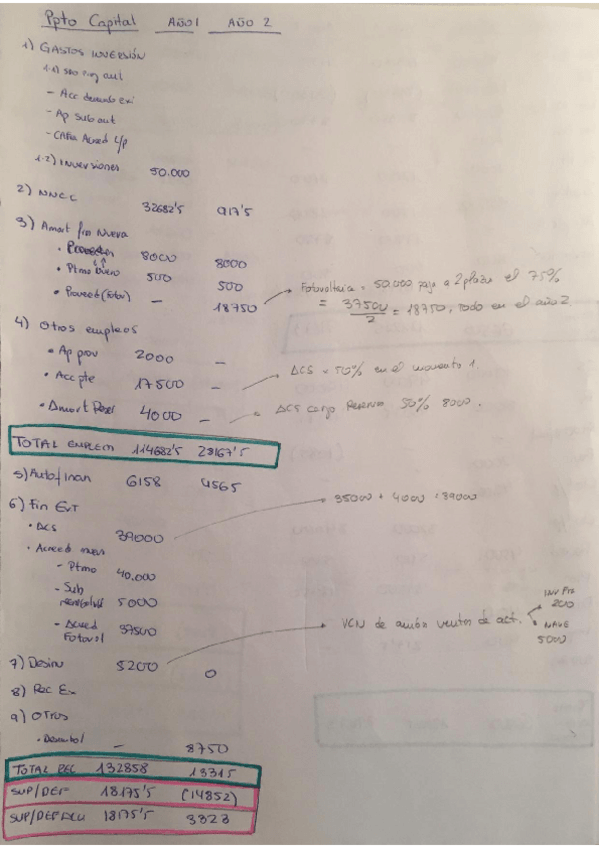 Ppto Capital AÑO 1 AÑO 2
1) GASTOS INVERSIÓN
- Ap sub aut
1.2) Inversiones 50.000
2) NNCC 32682'5 917'5
3) Amort fin Nueva
8000 8000
• Ptmo 500 500
• Proveed (Fotov) — 18750
Fotovoltaica = 50.000 paga a 2 plazos el 75%
= 37500/2 = 18750, todo en el año 2.
4) Otros empleos
• Ap prov 2000 —
• Acc pte 17500 —
ΔCS = 50% en el momento 1.
• Amort 4000 —
ΔCS cargo Reservas 50% 8000.
TOTAL EMPLEOS 114682'5 28167'5
5) Autofinan 6158 4565
6) Fin Ext
35000 + 4000 = 39000
• ΔCS 39000
• Acreed
- Ptmo 40.000
- Sub 5000
- Acreed Fotovol 37500
VCN de camión ventas de act.
INV Fra 200
NAVE 5000
7) Desinv 5200 0
8) Rec Ex
9) OTROS
• — 8750
TOTAL REC 132858 13315
SUP/DEF 18175'5 (14852)
SUP/DEF ACU 18175'5 3323